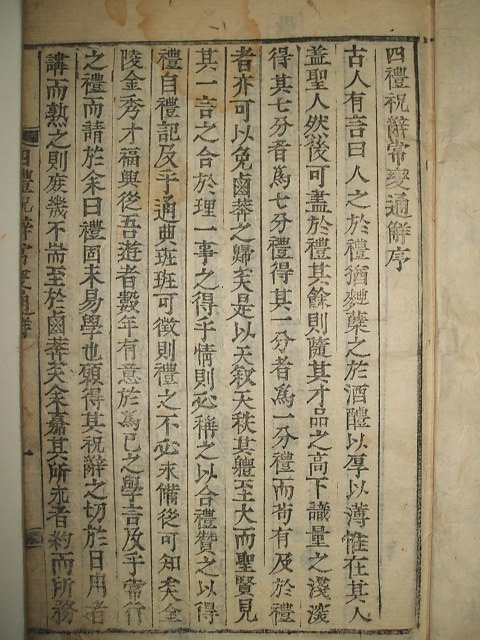 四禮祝辭常變通解序
古人有言曰人之於禮猶麴蘖之於酒醴以厚以薄惟在其人
盖聖人然後可盡於禮其餘則隨其才品之高下識量之淺深
得其七分者爲七分禮得其一分者爲一分禮而苟有及於禮
者亦可以免鹵莽之歸矣是以天敘天秩其軆至大而聖賢見
其一言之合於理一事之得乎情則必稱之以合禮贊之以得
禮自禮記及乎通典班班可徵則禮之不必求備後可知矣全
陵金秀才福興後吾遊者數年有意於爲己之學言及乎常行
之禮而請於余曰禮固未易學也願得其祝辭之切於日用者
講而熟之則庶幾不耑至於鹵莽矣余嘉其所求者約而所務
四禮祝辭常變通解 一